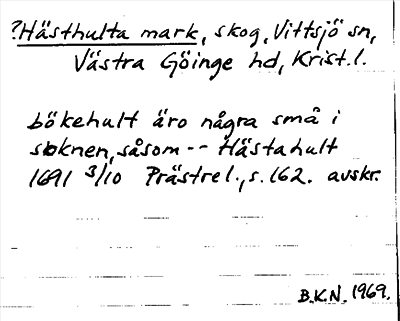 ?Hästhulta mark, skog, Vittsjö sn,
Västra Göinge hd, Krist.l.
bökehult äro några små i
soknen, såsom -- Hästahult
1691 3/10 Prästrel., s. 162. avskr.
B.K.N. 1969.